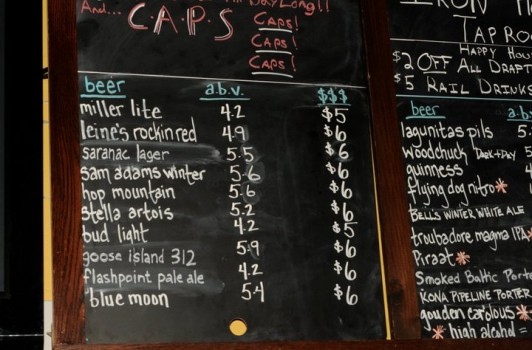 And... Day Long!!
CAPS Caps!
Caps!
Caps!
beer a.b.v. $$$
miller lite 4.2 $5
leine's rockin red 4.9 $6
saranac lager 5.5 $6
sam adams winter 5.6 $6
hop mountain 5.6 $6
stella artois 5.2 $6
bud light 4.2 $5
goose island 312 5.9 $6
flashpoint pale ale 4.2 $6
blue moon 5.4 $6
Taproo
Happy Hou
$2 OFF All Draft
$5 Rail Drinks
beer a.b
lagunitas pils 5
woodchuck Dark+Day 5
guinness 4
flying dog nitro*
Bell's Winter White Ale
troubadore magma IPA*
Piraat*
Smoked Baltic Porte
Kona Pipeline Porter
gouden carolous*
* high alcohol =